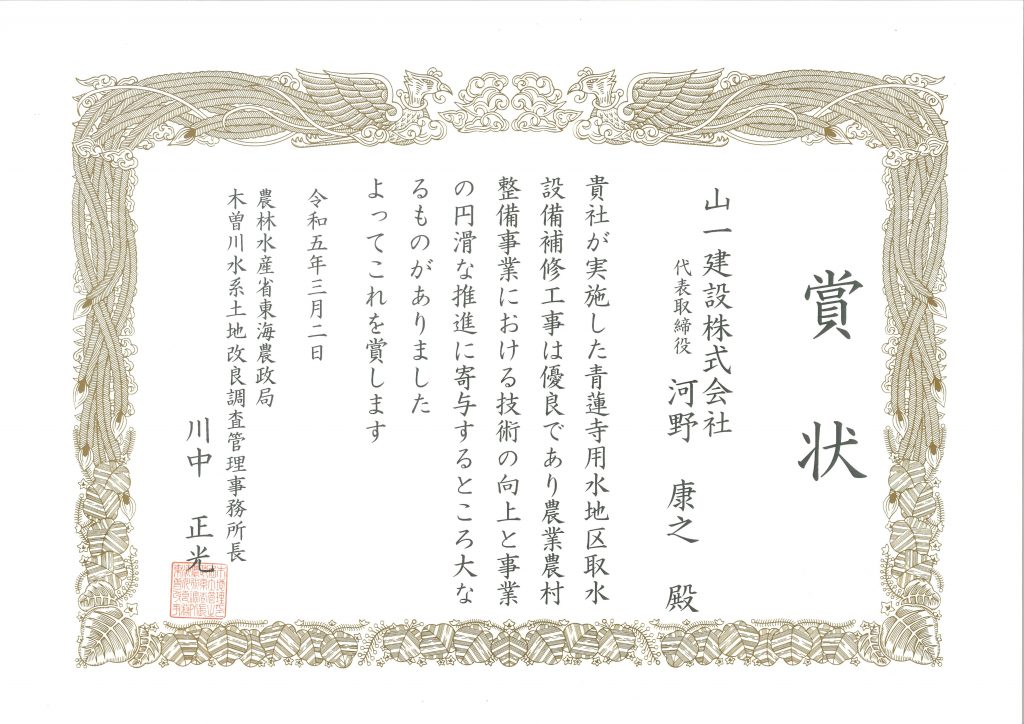 賞状
山一建設株式会社
代表取締役 河野 康之 殿
貴社が実施した青蓮寺用水地区取水
設備補修工事は優良であり農業農村
整備事業における技術の向上と事業
の円滑な推進に寄与するところ大な
るものがありました
よってこれを賞します
令和五年三月二日
農林水産省東海農政局
木曽川水系土地改良調査管理事務所長
川中 正光